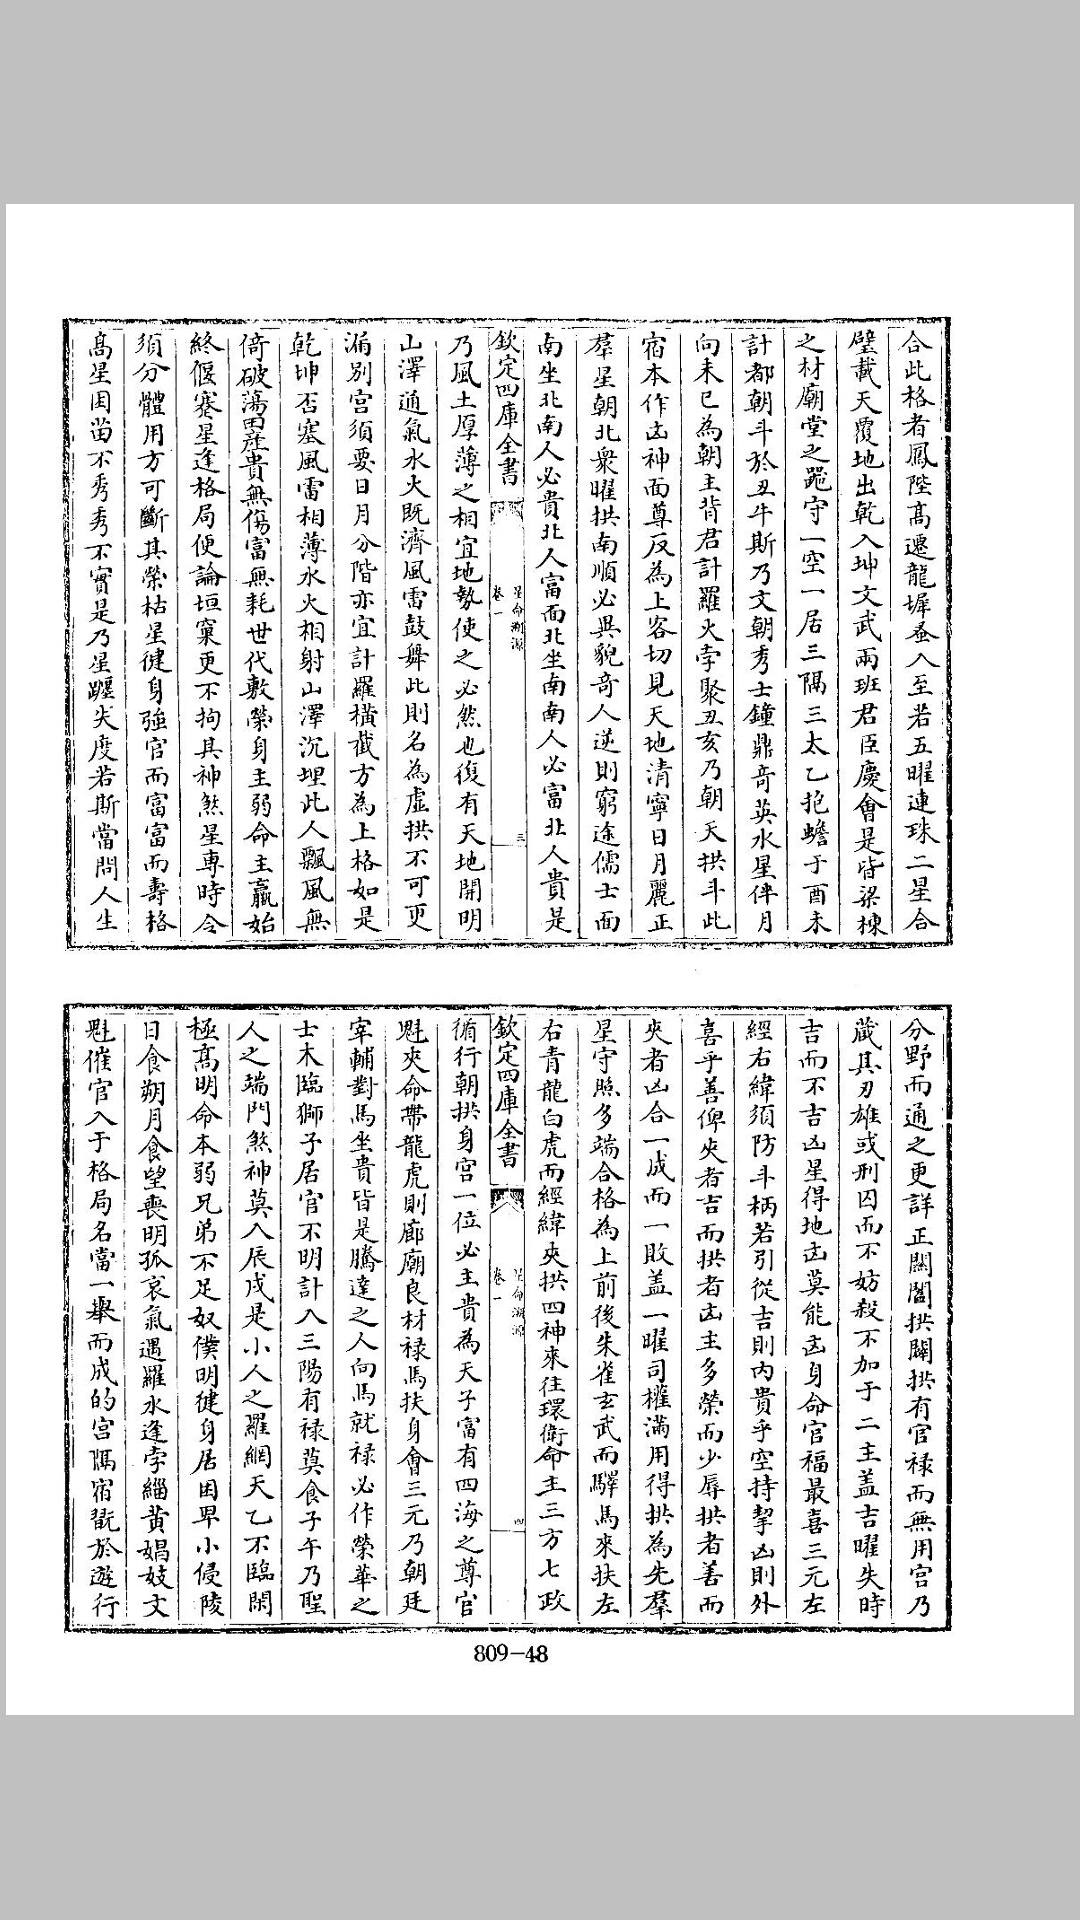 合此格者鳳陛高遷龍墀蚤入至若五曜連珠二星合
璧載天覆地出乾入坤文武兩班君臣慶會是皆梁棟
之材廟堂之跪守一空一居三隅三太乙抱蟾于酉未
計都朝斗於丑牛斯乃文朝秀士鐘鼎竒英水星伴月
向未已為朝主背君計羅火孛聚丑亥乃朝天拱斗此
宿本作凶神而尊反為上客切見天地清寧日月麗正
羣星朝北衆曜拱南順必異貌竒人逆則窮途儒士面
南坐北南人必貴北人富面北坐南南人必富北人貴是
欽定四庫全書
星命溯源
卷一
三
乃風土厚薄之相宜地勢使之必然也復有天地開明
山澤通氣水火既濟風雷鼓舞此則名為虚拱不可更
漏别宮須要日月分階亦宜計羅橫截方為上格如是
乾坤否塞風雷相薄水火相射山澤沉埋此人飄風無
倚破蕩田産貴無傷富無耗世代敷榮身主弱命主羸始
終偃蹇星逢格局便論垣窠更不拘其神煞星專時令
須分體用方可斷其榮枯星健身強官而富富而壽格
高星困苗不秀秀不實是乃星躔失度若斯當問人生
分野而通之更詳正關闔拱闢拱有官禄而無用宫乃
蔵其刃雄或刑囚而不妨殺不加于二主盖吉曜失時
吉而不吉凶星得地凶莫能凶身命官福最喜三元左
經右緯須防斗柄若引從吉則内貴乎空持挈凶則外
喜乎善俾夾者吉而拱者凶主多榮而少辱拱者善而
夾者凶合一成而一敗盖一曜司權滿用得拱為先羣
星守照多端合格為上前後朱雀玄武而驛馬來扶左
右青龍白虎而經緯夾拱四神來往環衛命主三方七政
欽定四庫全書
星命溯源
卷一
四
循行朝拱身宫一位必主貴為天子富有四海之尊官
魁夾命帶龍虎則廊廟良材禄馬扶身會三元乃朝廷
宰輔對馬坐貴皆是騰達之人向馬就禄必作榮華之
士木臨獅子居官不明計入三陽有禄莫食子午乃聖
人之端門煞神莫入辰戌是小人之羅網天乙不臨閑
極高明命本弱兄弟不足奴僕明健身居困卑小侵陵
日食朔月食望喪明孤哀氣遇羅水逢孛緇黄娼妓文
魁催官入于格局名當一舉而成的宫隅宿翫於遊行
809-48